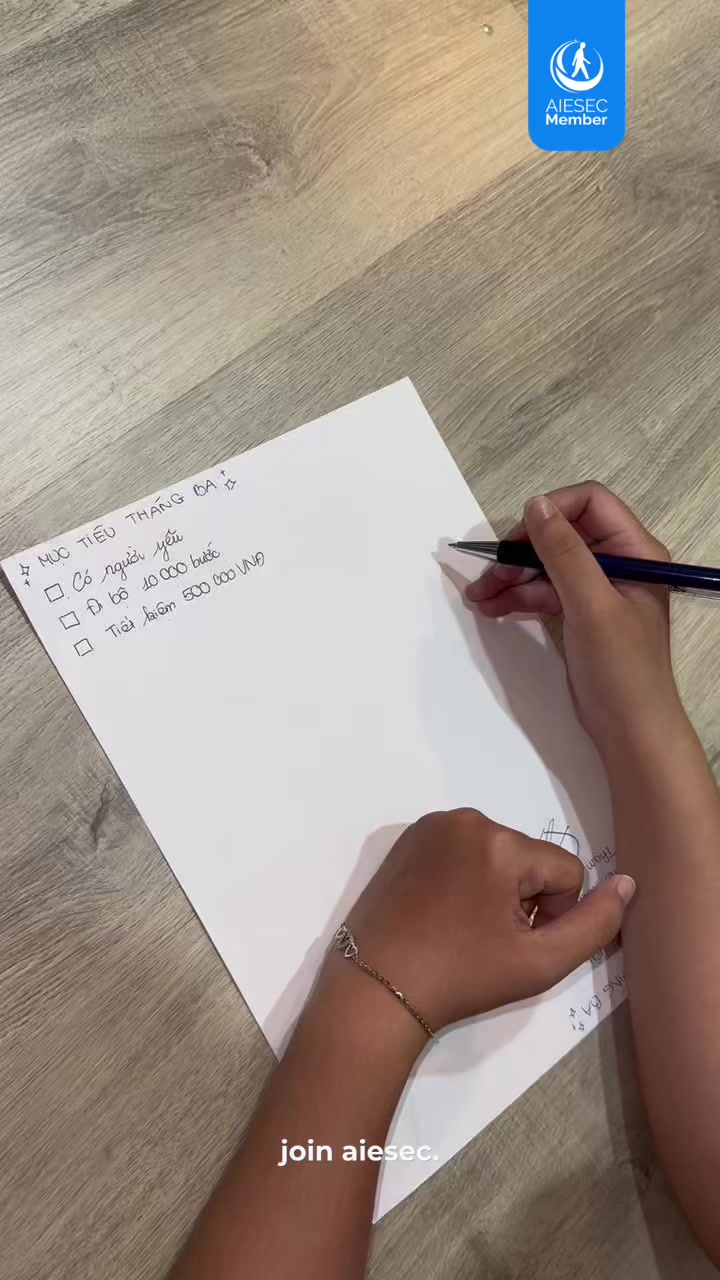 AIESEC
Member
MỤC TIÊU THÁNG BA
Có người yêu
Đi bộ 10 000 bước
Tiết kiệm 500 000 VNĐ
NG BA
join aiesec.